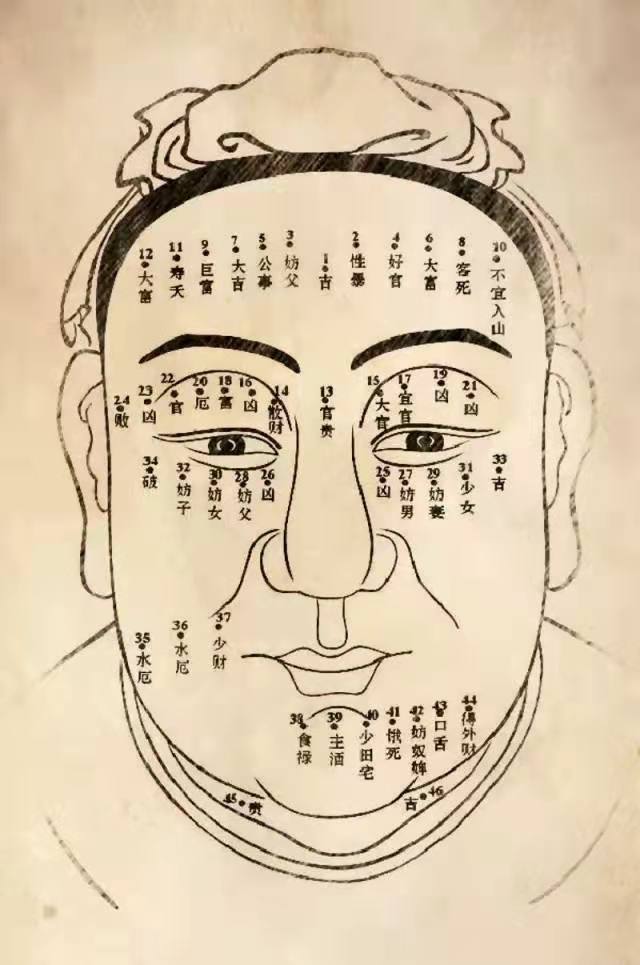 12 大富
11 寿夭
9 巨富
7 大吉
5 公事
3 妨父
1 吉
2 性暴
4 好官
6 大富
8 客死
10 不宜入山
24 败
23 凶
22 官
20 厄
18 富
16 凶
14 散财
13 官贵
15 大官
17 宜官
19 凶
21 凶
34 破
32 妨子
30 妨女
28 妨父
26 凶
25 凶
27 妨男
29 妨妻
31 少女
33 吉
35 水厄
36 水厄
37 少财
38 食禄
39 主酒
40 少田宅
41 饿死
42 妨奴婢
43 口舌
44 得外财
45 贵
吉 46